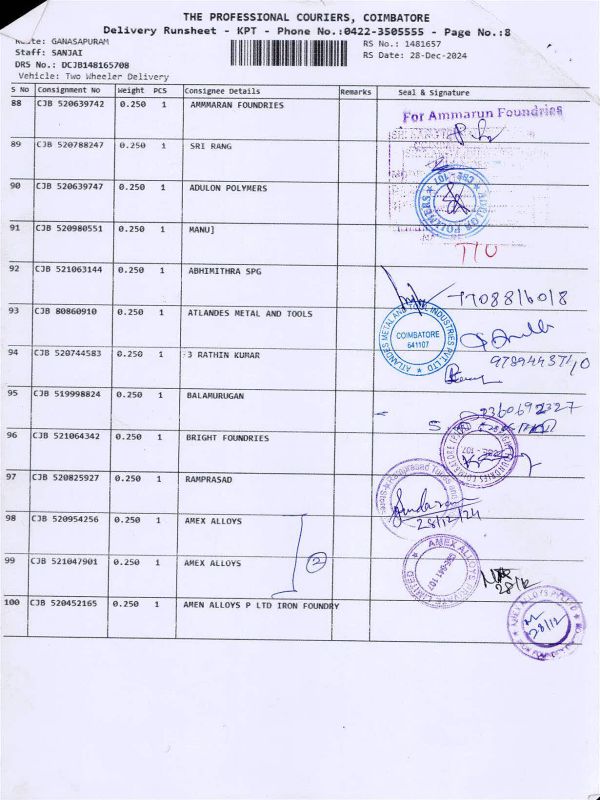 THE PROFESSIONAL COURIERS, COIMBATORE
Delivery Runsheet - KPT - Phone No.:0422-3505555 - Page No.:8
Route: GANASAPURAM
RS No.: 1481657
Staff: SANJAI
RS Date: 28-Dec-2024
DRS No.: DCJB148165708
Vehicle: Two Wheeler Delivery
S No Consignment No Weight PCS Consignee Details Remarks Seal & Signature
88 CJB 520639742 0.250 1 AMMMARAN FOUNDRIES
For Ammarun Foundries
89 CJB 520788247 0.250 1 SRI RANG
90 CJB 520639747 0.250 1 ADULON POLYMERS
91 CJB 520980551 0.250 1 MANU]
92 CJB 521063144 0.250 1 ABHIMITHRA SPG
7708816018
93 CJB 80860910 0.250 1 ATLANDES METAL AND TOOLS
ATLANDES METAL AND TOOL INDUSTRIES PVT LTD
COIMBATORE
641107
94 CJB 520744583 0.250 1 :3 RATHIN KUMAR
9789443740
95 CJB 519998824 0.250 1 BALAMURUGAN
96 CJB 521064342 0.250 1 BRIGHT FOUNDRIES
97 CJB 520825927 0.250 1 RAMPRASAD
28/12/24
98 CJB 520954256 0.250 1 AMEX ALLOYS
2
99 CJB 521047901 0.250 1 AMEX ALLOYS
AMEX ALLOYS PRIVATE LIMITED
28/12
100 CJB 520452165 0.250 1 AMEN ALLOYS P LTD IRON FOUNDRY
28/12